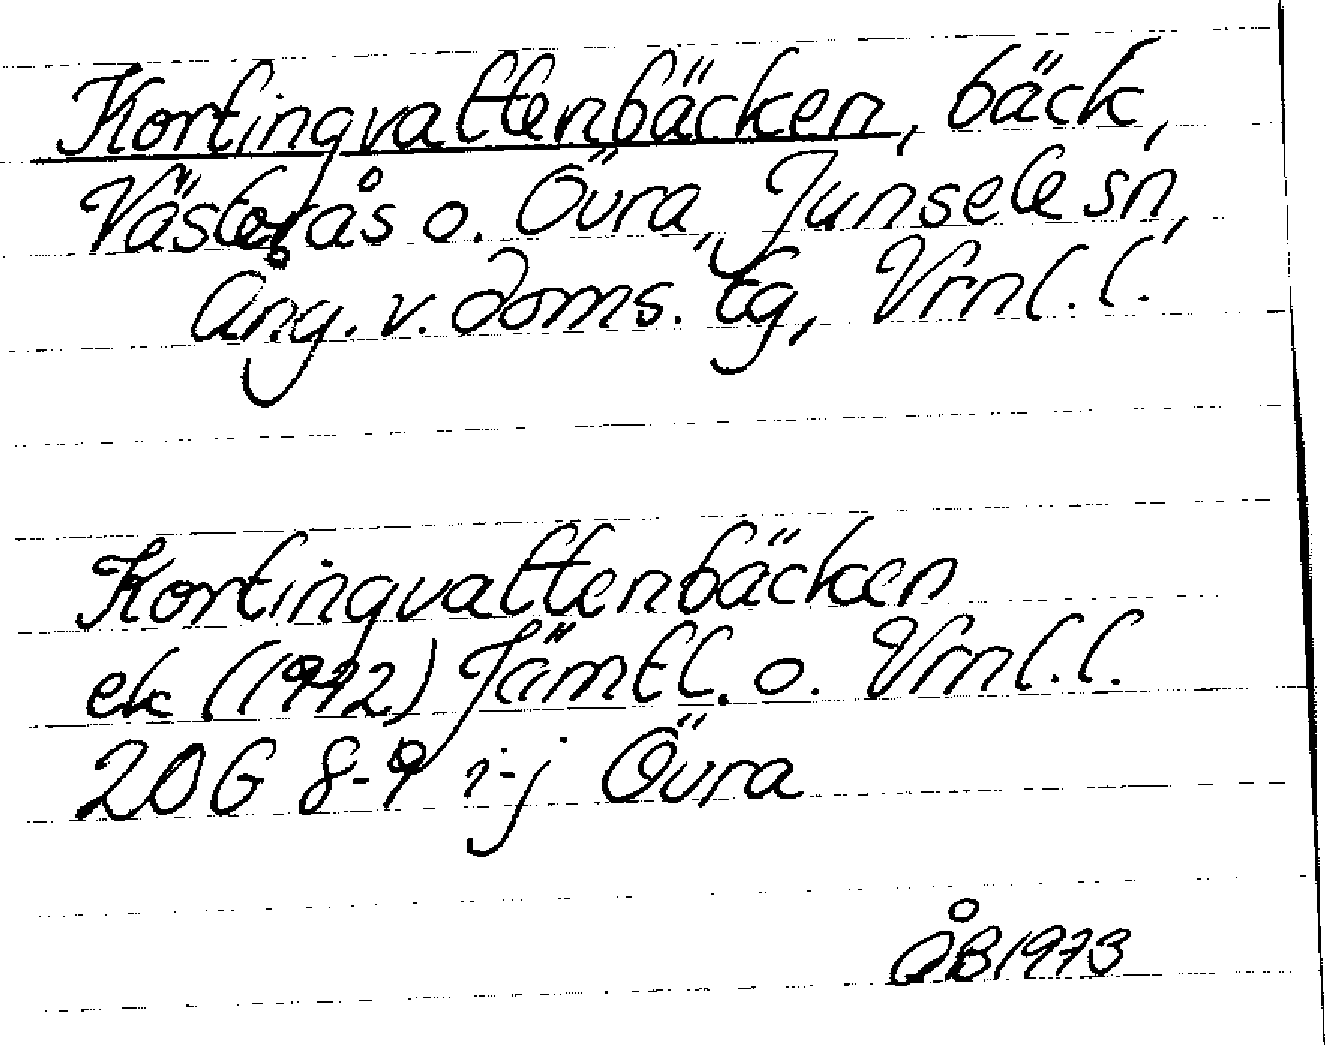 Kortingvattenbäcken, bäck,
Västerås o. Övra, Junsele sn,
Ång. v. doms. tg, Vrnl. l.
Kortingvattenbäcken
ek (1972) Jämtl. o. Vrnl. l.
20G 8-9 i-j Övra
ÅB 1973